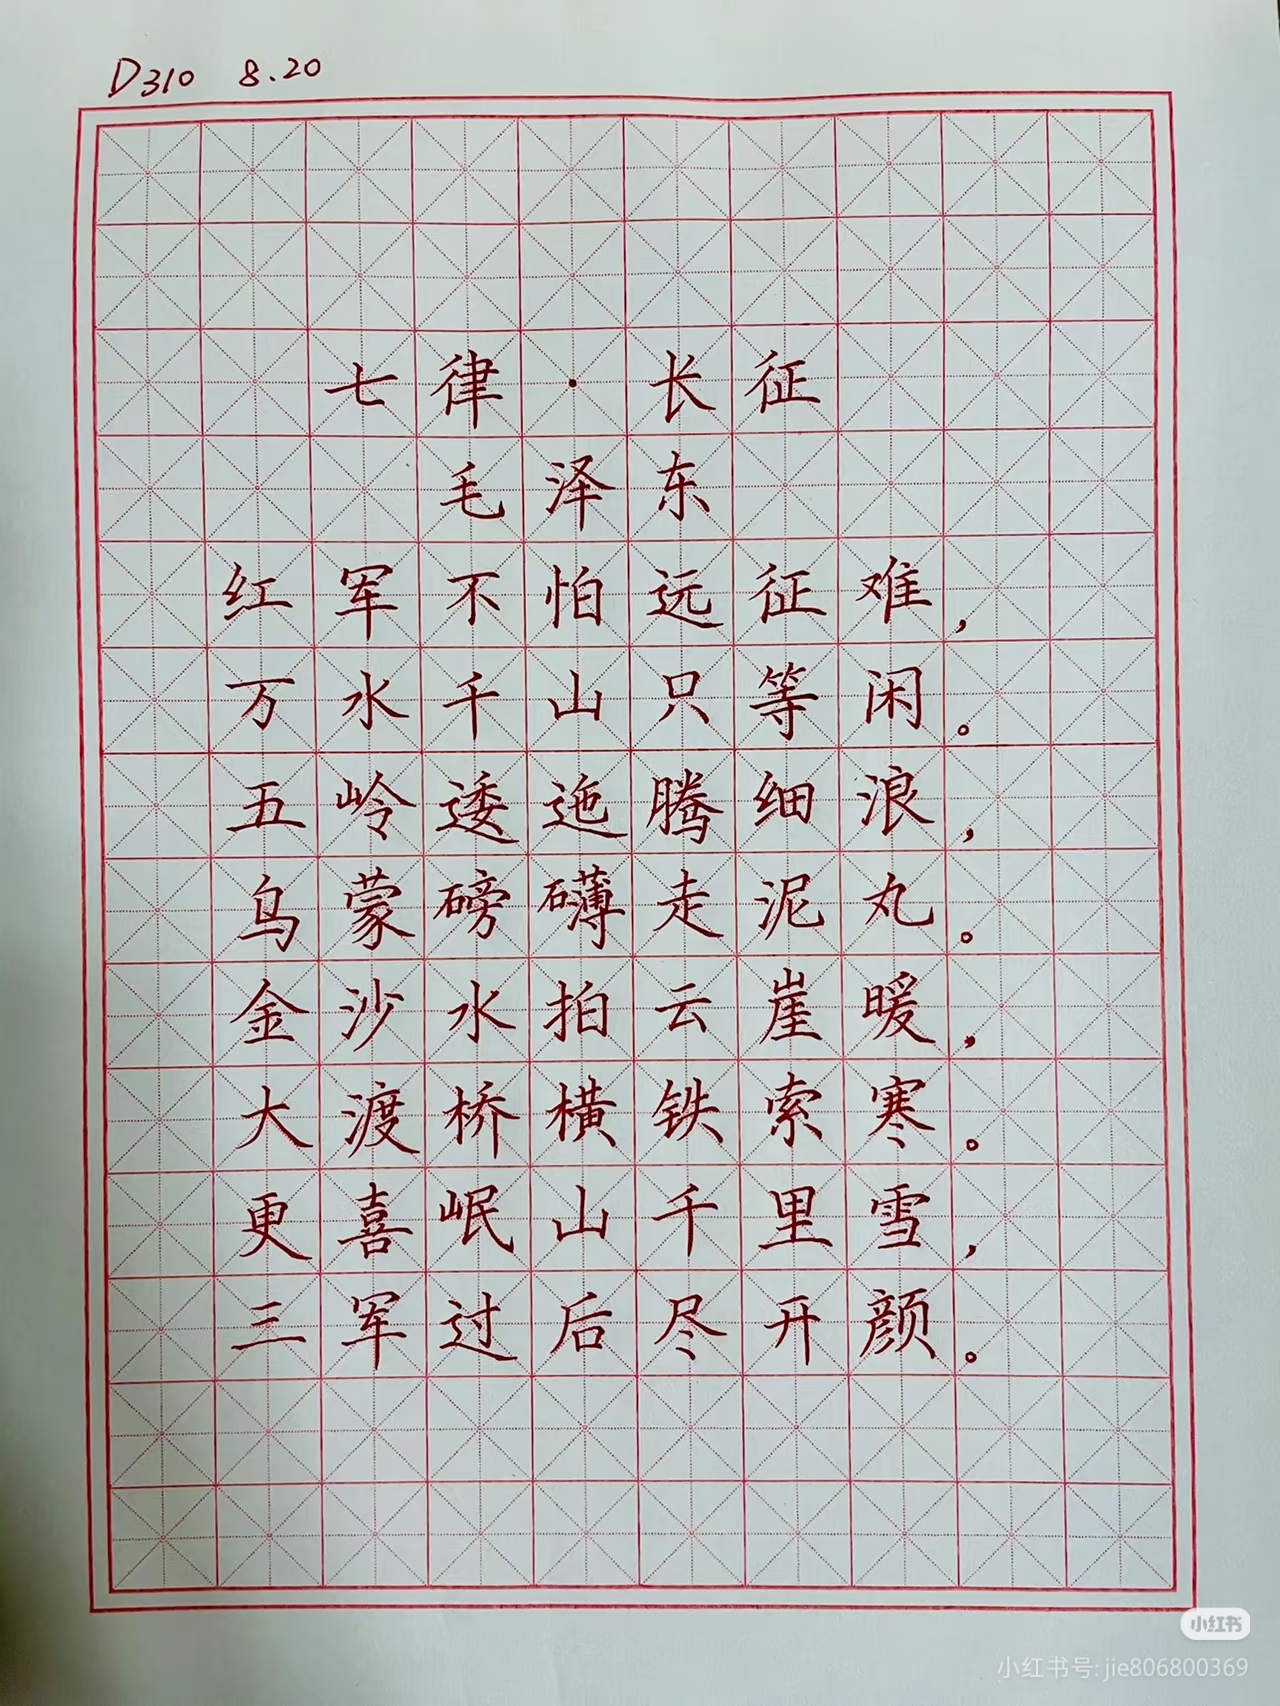 D310 8.20
七律·长征
毛泽东
红军不怕远征难，
万水千山只等闲。
五岭逶迤腾细浪，
乌蒙磅礴走泥丸。
金沙水拍云崖暖，
大渡桥横铁索寒。
更喜岷山千里雪，
三军过后尽开颜。
小红书
小红书号: jie806800369